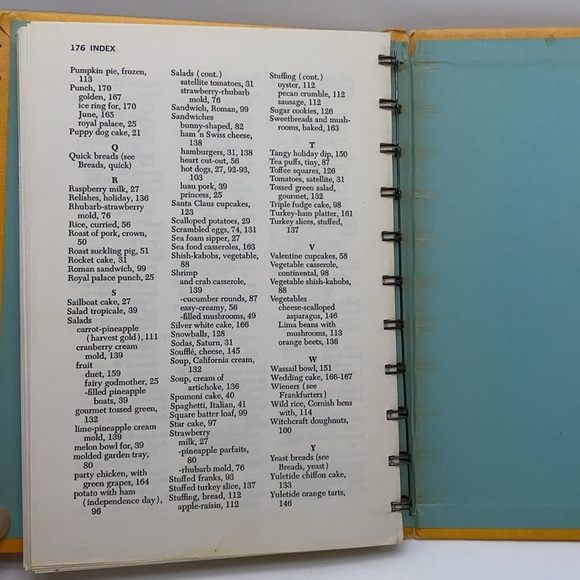 176 INDEX
Pumpkin pie, frozen,
113
Punch, 170
golden, 167
ice ring for, 170
June, 165
royal palace, 25
Puppy dog cake, 21
Q
Quick breads (see
Breads, quick)
R
Raspberry milk, 27
Relishes, holiday, 136
Rhubarb-strawberry
mold, 76
Rice, curried, 56
Roast of pork, crown,
50
Roast suckling pig, 51
Rocket cake, 31
Roman sandwich, 99
Royal palace punch, 25
S
Sailboat cake, 27
Salad tropicale, 39
Salads
carrot-pineapple
(harvest gold), 111
cranberry cream
mold, 139
fruit
duet, 159
fairy godmother, 25
-filled pineapple
boats, 39
gourmet tossed green,
132
lime-pineapple cream
mold, 139
melon bowl for, 39
molded garden tray,
80
party chicken, with
green grapes, 164
potato with ham
(independence day),
96
Salads (cont.)
satellite tomatoes, 31
strawberry-rhubarb
mold, 76
Sandwich, Roman, 99
Sandwiches
bunny-shaped, 82
ham 'n Swiss cheese,
138
hamburgers, 31, 138
heart cut-out, 56
hot dogs, 27, 92-93,
103
luau pork, 39
princess, 25
Santa Claus cupcakes,
123
Scalloped potatoes, 29
Scrambled eggs, 74, 131
Sea foam sipper, 27
Sea food casseroles, 163
Shish-kabobs, vegetable,
88
Shrimp
and crab casserole,
139
-cucumber rounds, 87
easy-creamy, 56
-filled mushrooms, 49
Silver white cake, 166
Snowballs, 128
Sodas, Saturn, 31
Soufflé, cheese, 145
Soup, California cream,
132
Soup, cream of
artichoke, 136
Spumoni cake, 40
Spaghetti, Italian, 41
Square batter loaf, 99
Star cake, 97
Strawberry
milk, 27
-pineapple parfaits,
80
-rhubarb mold, 76
Stuffed franks, 93
Stuffed turkey slice, 137
Stuffing, bread, 112
apple-raisin, 112
Stuffing (cont.)
oyster, 112
pecan crumble, 112
sausage, 112
Sugar cookies, 126
Sweetbreads and mush-
rooms, baked, 163
T
Tangy holiday dip, 150
Tea puffs, tiny, 87
Toffee squares, 126
Tomatoes, satellite, 31
Tossed green salad,
gourmet, 132
Triple fudge cake, 98
Turkey-ham platter, 161
Turkey slices, stuffed,
137
V
Valentine cupcakes, 58
Vegetable casserole,
continental, 98
Vegetable shish-kabobs,
88
Vegetables
cheese-scalloped
asparagus, 146
Lima beans with
mushrooms, 113
orange beets, 136
W
Wassail bowl, 151
Wedding cake, 166-167
Wieners (see
Frankfurters)
Wild rice, Cornish hens
with, 114
Witchcraft doughnuts,
100
Y
Yeast breads (see
Breads, yeast)
Yuletide chiffon cake,
133
Yuletide orange tarts,
146